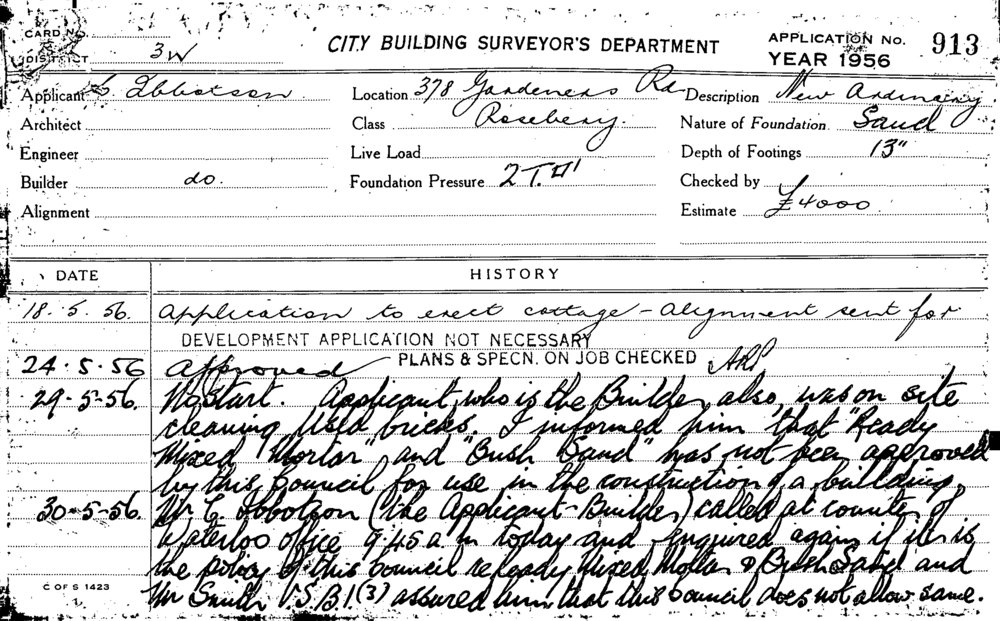 CARD No.
CITY BUILDING SURVEYOR'S DEPARTMENT
APPLICATION No. 913
DISTRICT 3W
YEAR 1956
Applicant Ibbotson
Location 378 Gardeners Rd
Description New
Architect
Class Rosebery.
Nature of Foundation Sand
Engineer
Live Load
Depth of Footings 13"
Builder do.
Foundation Pressure 2 T.
Checked by
Alignment
Estimate £4000
DATE HISTORY
18.5.56. Application to erect cottage - alignment sent for
DEVELOPMENT APPLICATION NOT NECESSARY
24.5.56 Approved PLANS & SPECN. ON JOB CHECKED
29.5.56. No Start. Applicant, who is the Builder also, was on site
cleaning Used bricks. I informed him that "Ready
Mixed Mortar" and "Bush Sand" has not been approved
by this Council for use in the construction of a building.
30-5-56. Mr Ibbotson (the Applicant-Builder) called at counter of
Waterloo Office 9.45 a.m today and inquired again if it is
the policy of this Council re Ready Mixed Mortar & Bush Sand and
Mr Smith S.B.I.(3) assured him that this Council does not allow same.
C OF S 1423